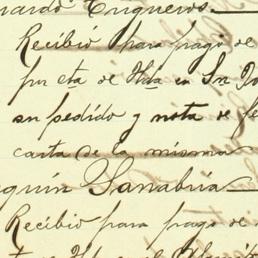 nardo Trigueros
Recibió para pago de
por cta de Hda en Sn
su pedido y nota de fe
carta de la misma
quín Sanabria
Recibió para pago de